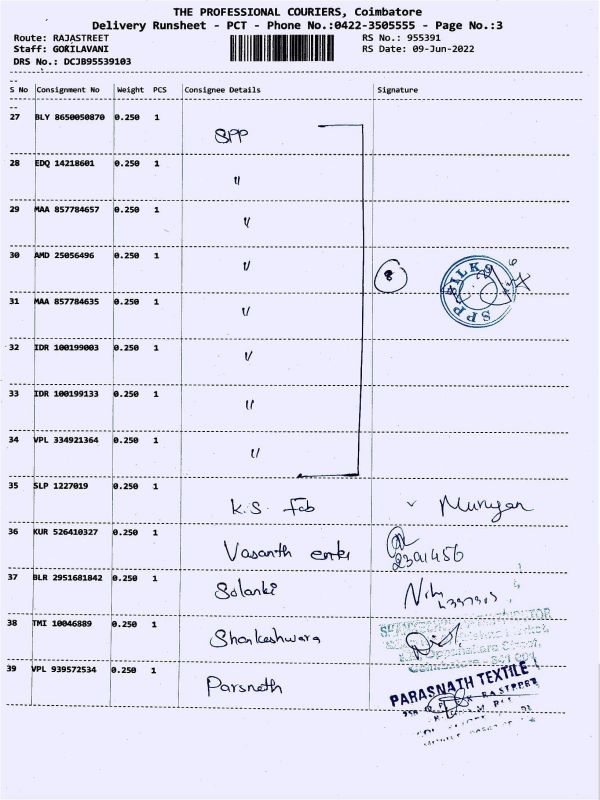 THE PROFESSIONAL COURIERS, Coimbatore
Delivery Runsheet - PCT - Phone No.:0422-3505555 - Page No.:3
Route: RAJASTREET RS No.: 955391
Staff: GOKILAVANI RS Date: 09-Jun-2022
DRS No.: DCJB95539103
S No Consignment No Weight PCS Consignee Details Signature
27 BLY 8650050870 0.250 1 SPP
28 EDQ 14218601 0.250 1 "
29 MAA 857784657 0.250 1 "
30 AMD 25056496 0.250 1 " 8 SPP SILKS
31 MAA 857784635 0.250 1 "
32 IDR 100199003 0.250 1 "
33 IDR 100199133 0.250 1 "
34 VPL 334921364 0.250 1 "
35 SLP 1227019 0.250 1 K.S. Fab Murugan
36 KUR 526410327 0.250 1 Vasanth
37 BLR 2951681842 0.250 1 Solanki
38 TMI 10046889 0.250 1 Shankeshwara
39 VPL 939572534 0.250 1 Parsnath
PARASNATH TEXTILE